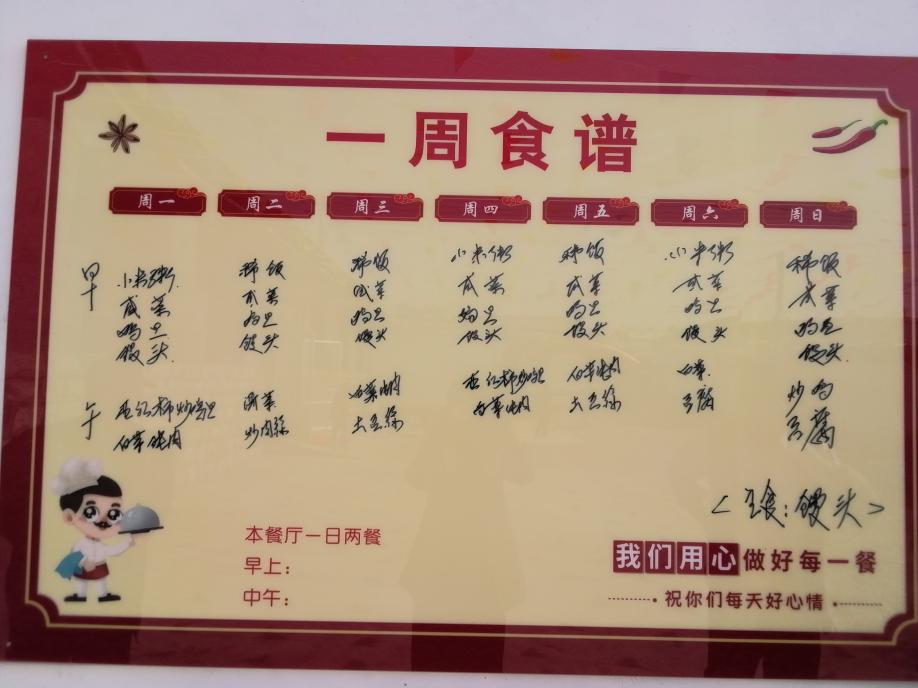 一周食谱
周一 周二 周三 周四 周五 周六 周日
早 小米粥 稀饭 稀饭 小米粥 稀饭 小米粥 稀饭
咸菜 咸菜 咸菜 咸菜 咸菜 咸菜 咸菜
鸡旦 鸡旦 鸡旦 鸡旦 鸡旦 鸡旦 鸡旦
馒头 馒头 馒头 馒头 馒头 馒头 馒头
午 西红柿炒鸡旦 白菜炖肉 西红柿炒鸡旦 白菜炖肉 白菜 炒鸡
白菜炖肉 炒肉丝 土豆丝 白菜炖肉 土豆丝 豆腐 豆腐
<主食:馒头>
本餐厅一日两餐
早上：
中午：
我们用心做好每一餐
祝你们每天好心情